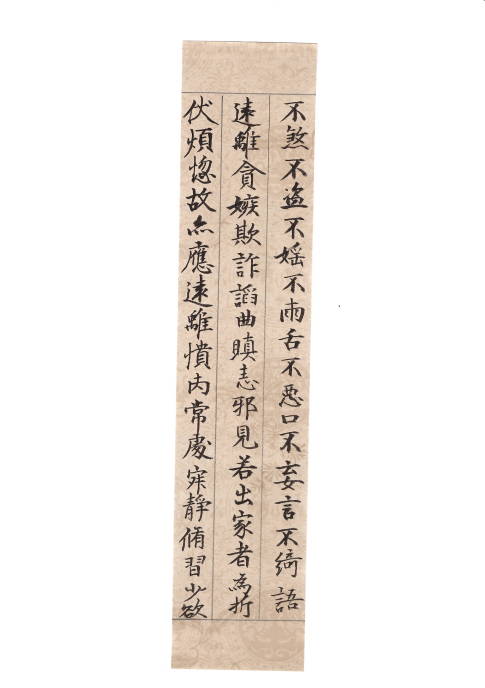 不煞不盗不婬不兩舌不惡口不妄言不綺語
遠離貪嫉欺詐諂曲瞋恚邪見若出家者為折
伏煩惱故亦應遠離憒內常處寂靜脩習少欲